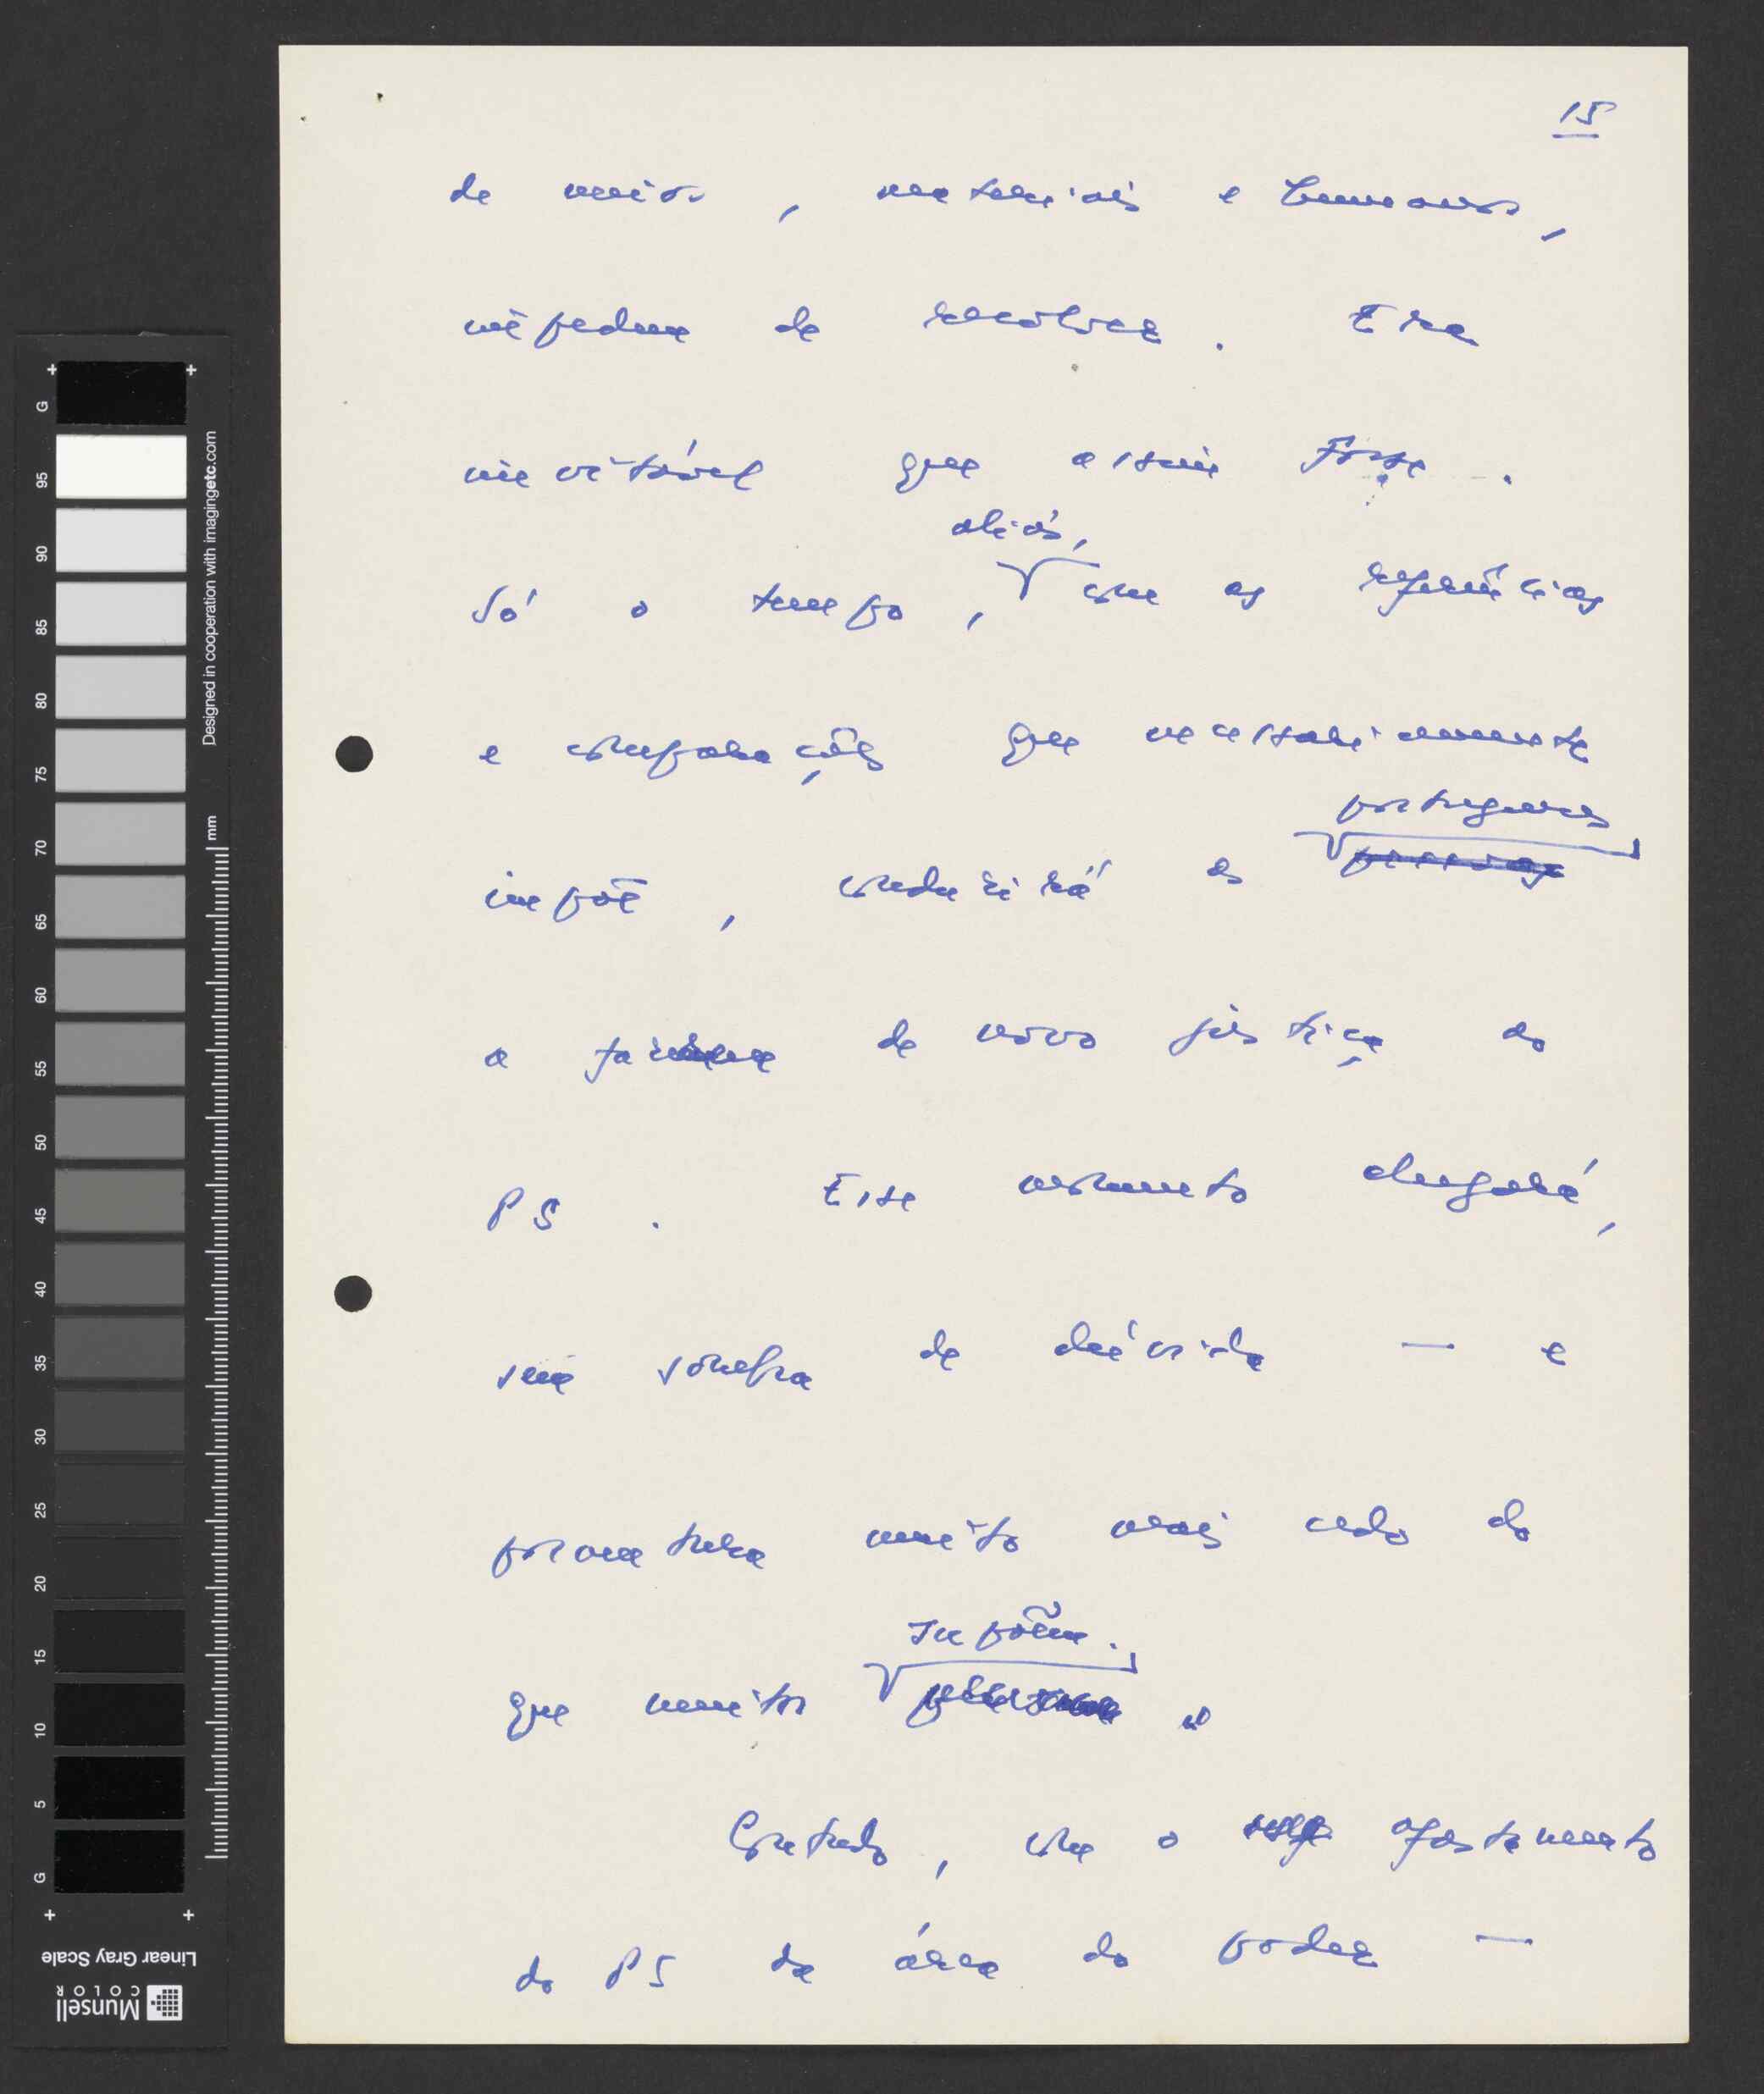 15
de meios, materiais e humanos,
impediam de resolver. Era
inevitável que assim fosse.
aliás,
Só o tempo, com as experiências
e comparações que necessariamente
portugueses
impõe, conduzirá os pessoas
a fazerem de novo justiça ao
PS. Esse momento chegará,
sem sombra de dúvida — e
porventura muito mais cedo do
que muitos
supõem.
Contudo, com o afastamento
do PS da área do poder —
G
95
90
85
80
75
70
65
60
55
50
45
40
35
30
25
20
15
10
5
G
Designed in cooperation with imagingetc.com
mm
Linear Gray Scale
Munsell
COLOR